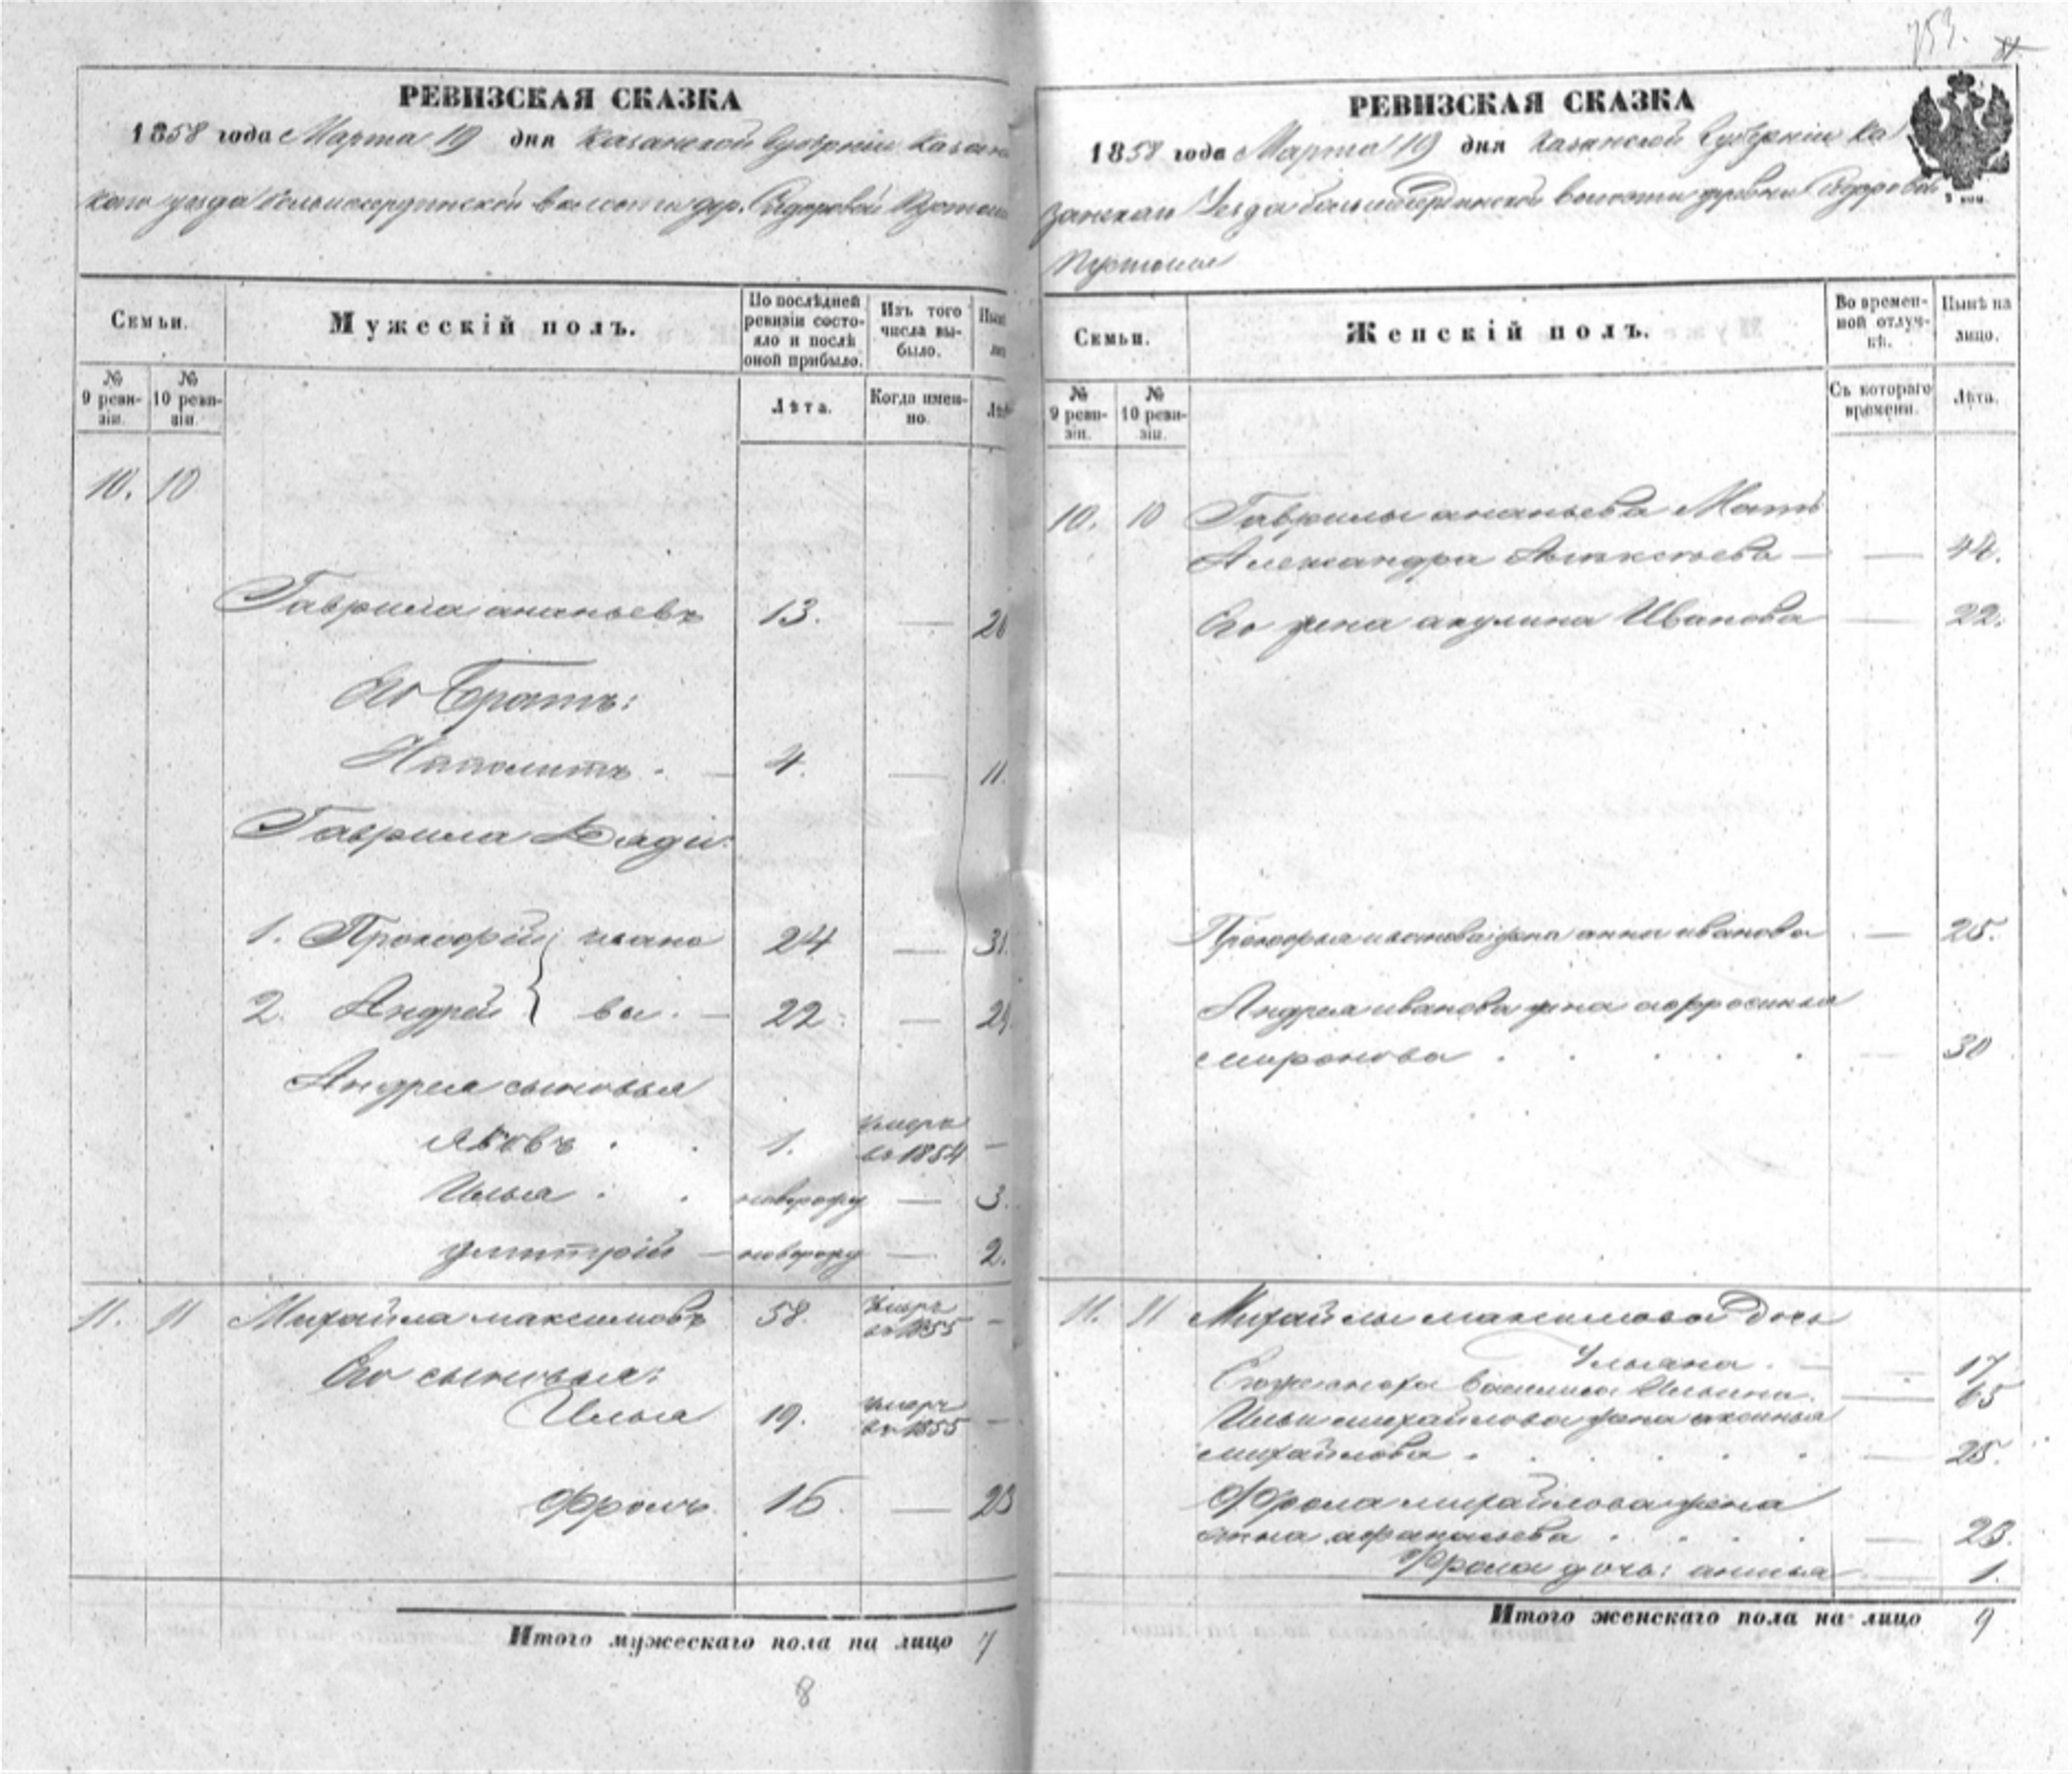 753.
РЕВИЗСКАЯ СКАЗКА
1858 года Марта 19 дня Казанской Губерніи Казанс
каго уезда волости дер. Сидоровой Пустоши
Семьи.
Мужескій полъ.
По послѣдней ревизіи состояло и послѣ оной прибыло.
Изъ того числа выбыло.
№ 9 ревизіи.
№ 10 ревизіи.
Лѣта.
Когда именно.
10. 10
Гаврила ананьевъ 13. — 20
Его Братъ:
Ипполитъ . — 4. — 11.
Гаврила Дяди:
1. Прокофій } ивано 24 — 31.
2. Андрей } вы . — 22 — 29.
Андрея сыновья
Яковъ . . 1. умеръ въ 1854 —
Илья . . новорожд — 3.
дмитрій — новорожд — 2.
11. 11 Михайла максимовъ 58. умеръ въ 1855 —
Его сыновья:
Илья 19. умеръ въ 1855 —
Фролъ 16. — 23
Итого мужескаго пола на лицо 7
8
РЕВИЗСКАЯ СКАЗКА
1858 года Марта 19 дня Казанской Губерніи Ка
занскаго Уезда волости деревни Сидоровой
Пустоши
Семьи.
Женскій полъ.
Во временной отлучкѣ.
Нынѣ на лицо.
№ 9 ревизіи.
№ 10 ревизіи.
Съ котораго времени.
Лѣта.
10. 10 Гаврилы ананьева Мать
Александра Алексѣева — — 44.
Его жена акулина Иванова — 22.
Прокофья иванова жена анна иванова — 25.
Андрея иванова жена афросинья
миронова . . . . . — 30
11. 11 Михайлы максимова Дочь
Ульяна . — — 17
Василиса Ильина. — 65
Ильи михайлова жена аксинья
михайлова . . . . — 25.
Фрола михайлова жена
анна афанасьева . . . . — 23.
Фрола дочь: анисья — 1.
Итого женскаго пола на лицо 9